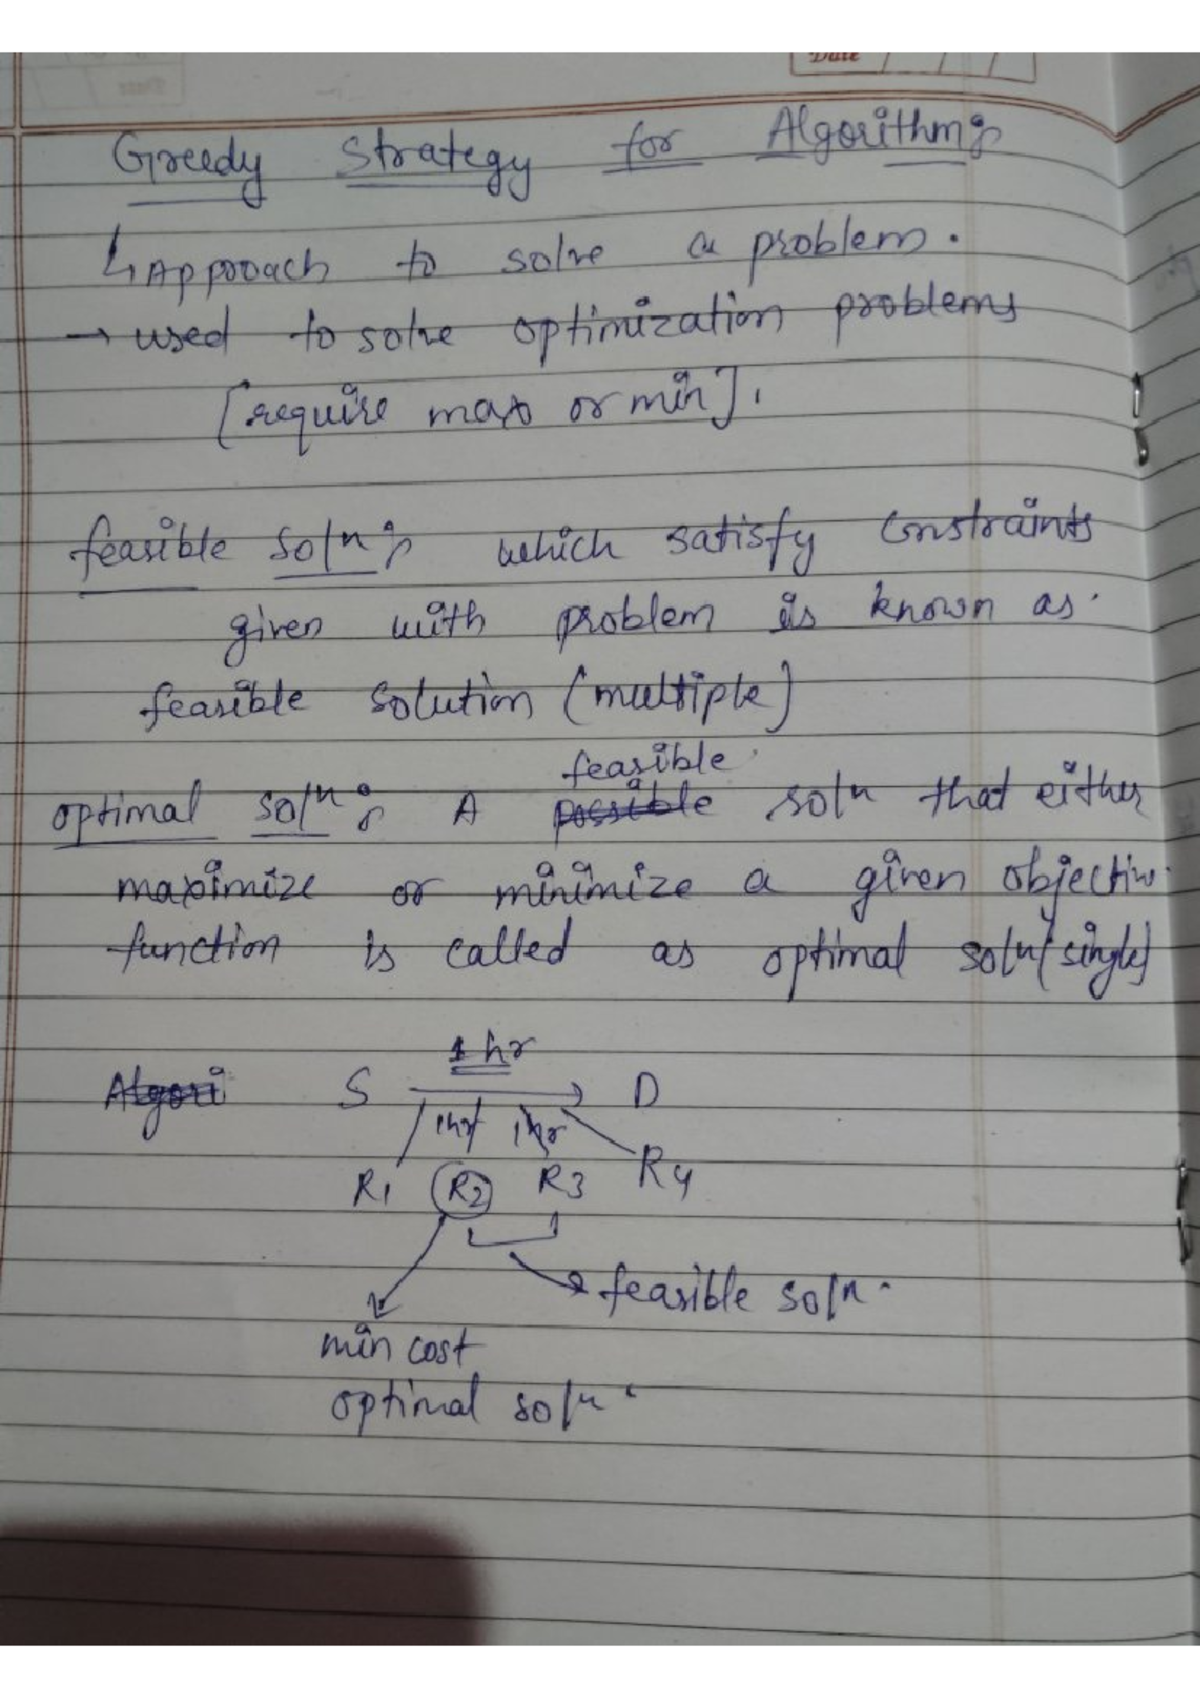 Date
Greedy Strategy for Algorithm:
↳ Approach to solve a problem.
→ used to solve optimization problems
[require max or min].
feasible soln: which satisfy constraints
given with problem is known as
feasible solution (multiple)
feasible
optimal soln: A possible soln that either
maximize or minimize a given objective
function is called as optimal soln (single)
1 hr
Algori S → D
1hr 1hr
R1 R2 R3 R4
feasible soln.
min cost
optimal soln.